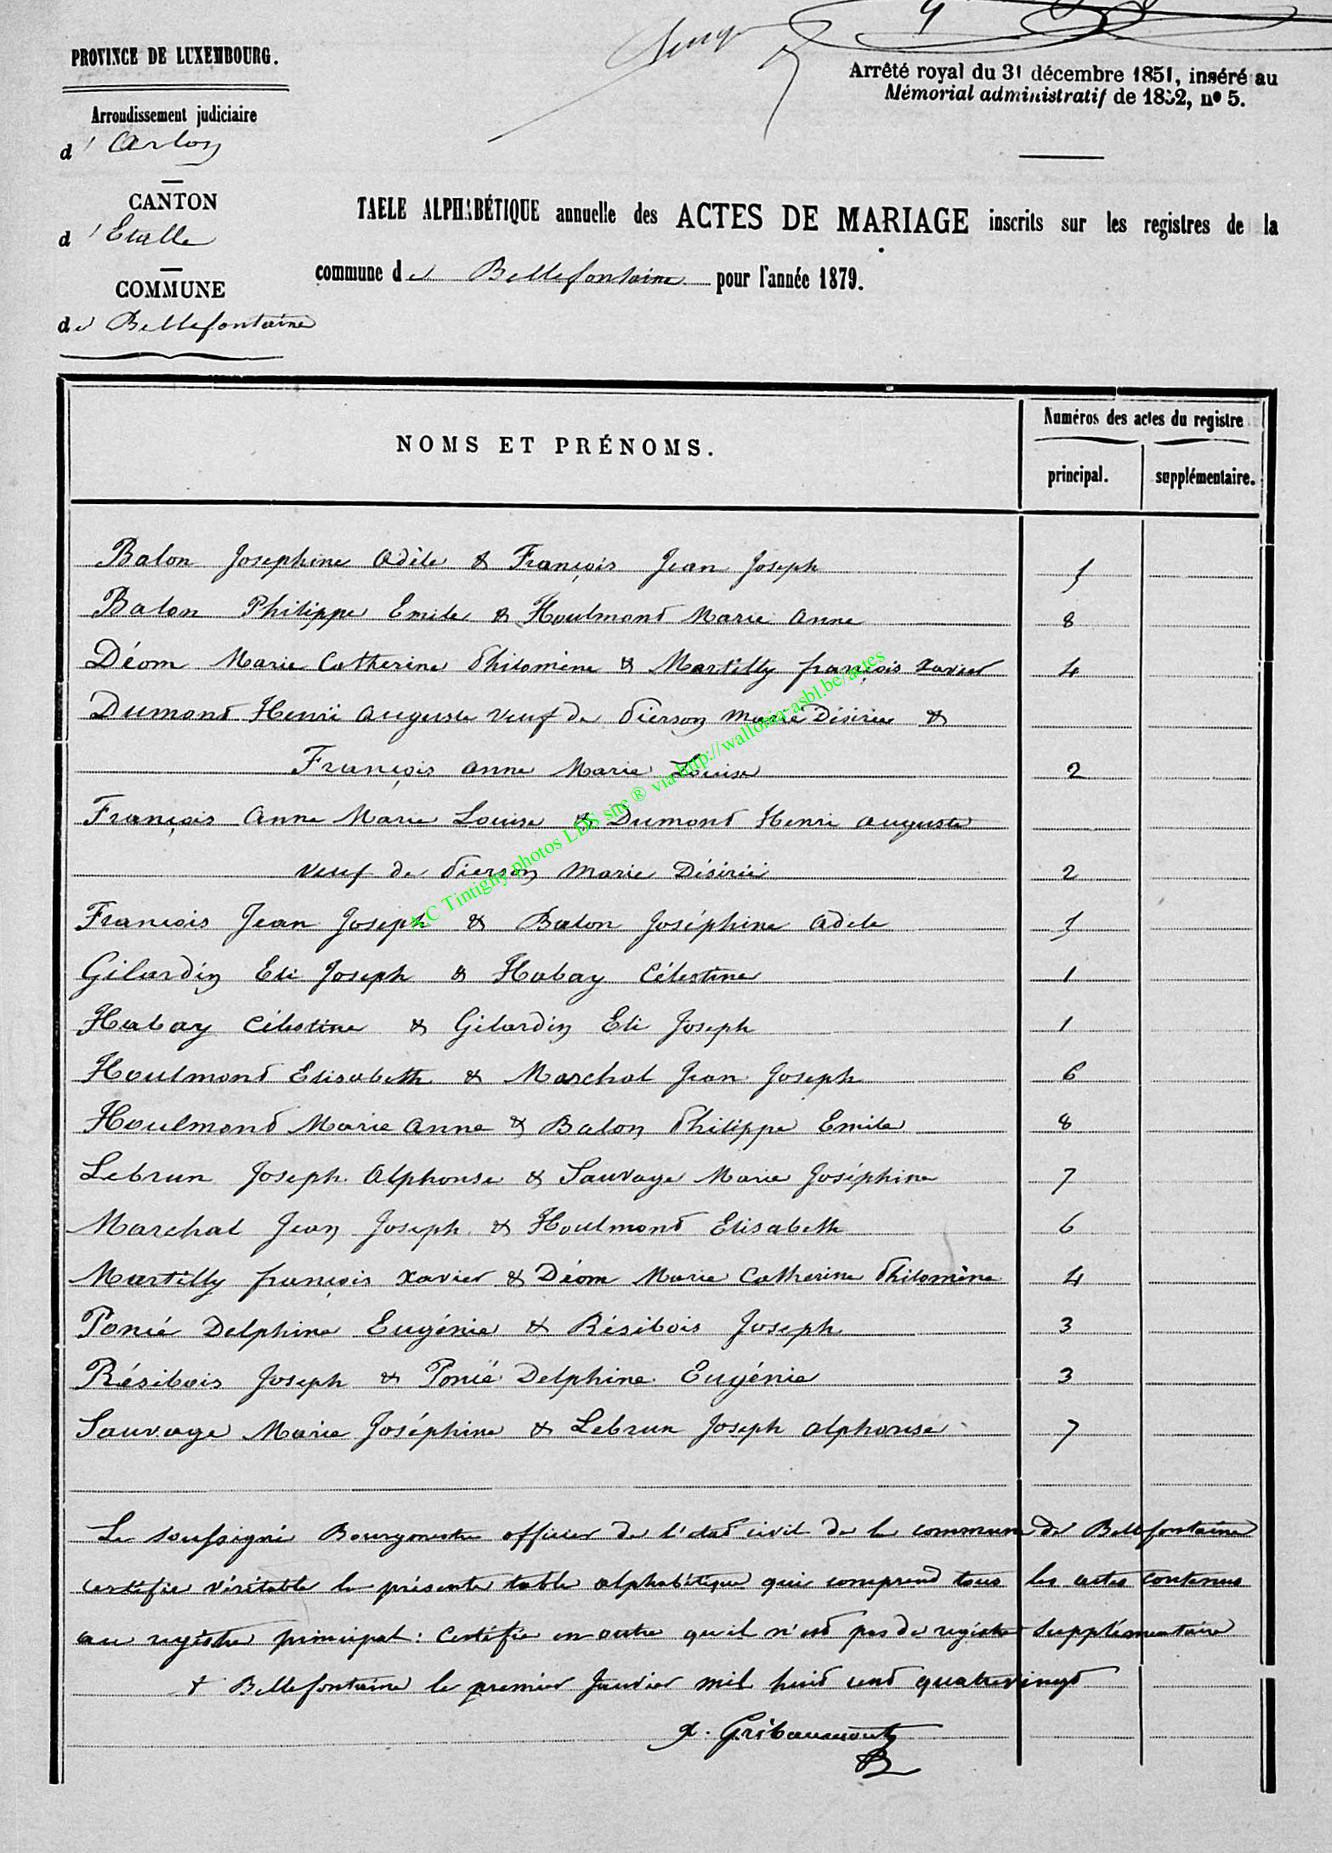 PROVINCE DE LUXEMBOURG.
Arrondissement judiciaire
d'Arlon
CANTON
d'Etalle
COMMUNE
de Bellefontaine
Arrêté royal du 31 décembre 1851, inséré au
Mémorial administratif de 1852, nº 5.
TABLE ALPHABÉTIQUE annuelle des ACTES DE MARIAGE inscrits sur les registres de la
commune de Bellefontaine pour l'année 1879.
NOMS ET PRÉNOMS.
Numéros des actes du registre
principal. supplémentaire.
Balon Josephine Adèle & François Jean Joseph 5
Balon Philippe Emile & Houlmond Marie Anne 8
Déom Marie Catherine Philomène & Martilly françois Xavier 4
Dumond Henri Auguste veuf de Pierson Marie Désirée &
François Anne Marie Louise 2
François Anne Marie Louise & Dumond Henri Auguste
veuf de Pierson Marie Désirée 2
François Jean Joseph & Balon Joséphine Adele 5
Gilardin Eli Joseph & Habay Célestine 1
Habay Célestine & Gilardin Eli Joseph 1
Houlmond Elisabeth & Marchal Jean Joseph 6
Houlmond Marie Anne & Balon Philippe Emile 8
Lebrun Joseph Alphonse & Sauvage Marie Joséphine 7
Marchal Jean Joseph & Houlmond Elisabeth 6
Martilly françois Xavier & Déom Marie Catherine Philomène 4
Poncé Delphine Eugénie & Résibois Joseph 3
Résibois Joseph & Poncé Delphine Eugénie 3
Sauvage Marie Joséphine & Lebrun Joseph Alphonse 7
Le soussigné Bourgmestre officier de l'état civil de la commune de Bellefontaine
certifie véritable la présente table alphabétique qui comprend tous les actes contenus
au registre principal : Certifie en outre qu'il n'est pas de registre supplémentaire
A Bellefontaine le premier Janvier mil huit cent quatrevingt
Gribaumont
EC Tintigny photos LDS site ® via http://wallonia-asbl.be/actes